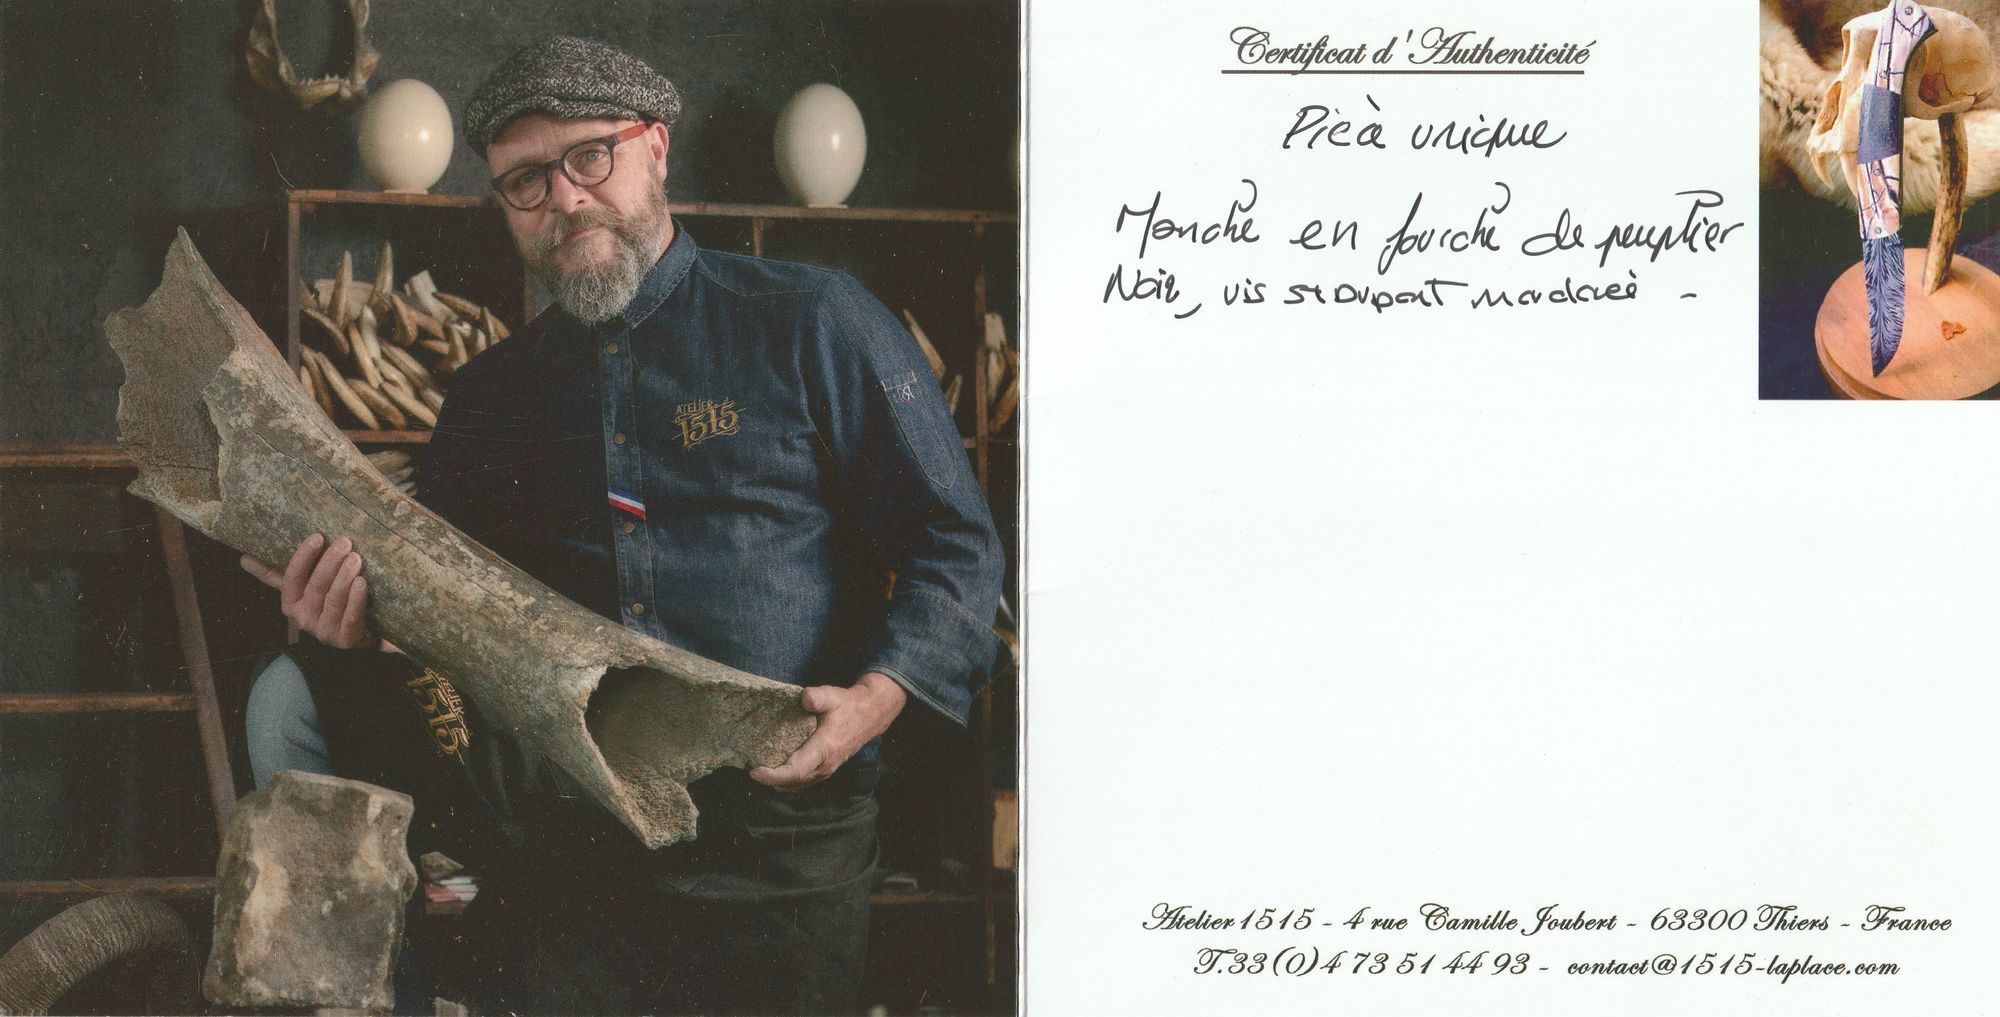 ATELIER
1515
ATELIER
1515
Certificat d'Authenticité
Pièce unique
Manche en fourche de peuplier
Noir, vis St Dupont
Atelier 1515 - 4 rue Camille Joubert - 63300 Thiers - France
T.33(0)4 73 51 44 93 - contact@1515-laplace.com